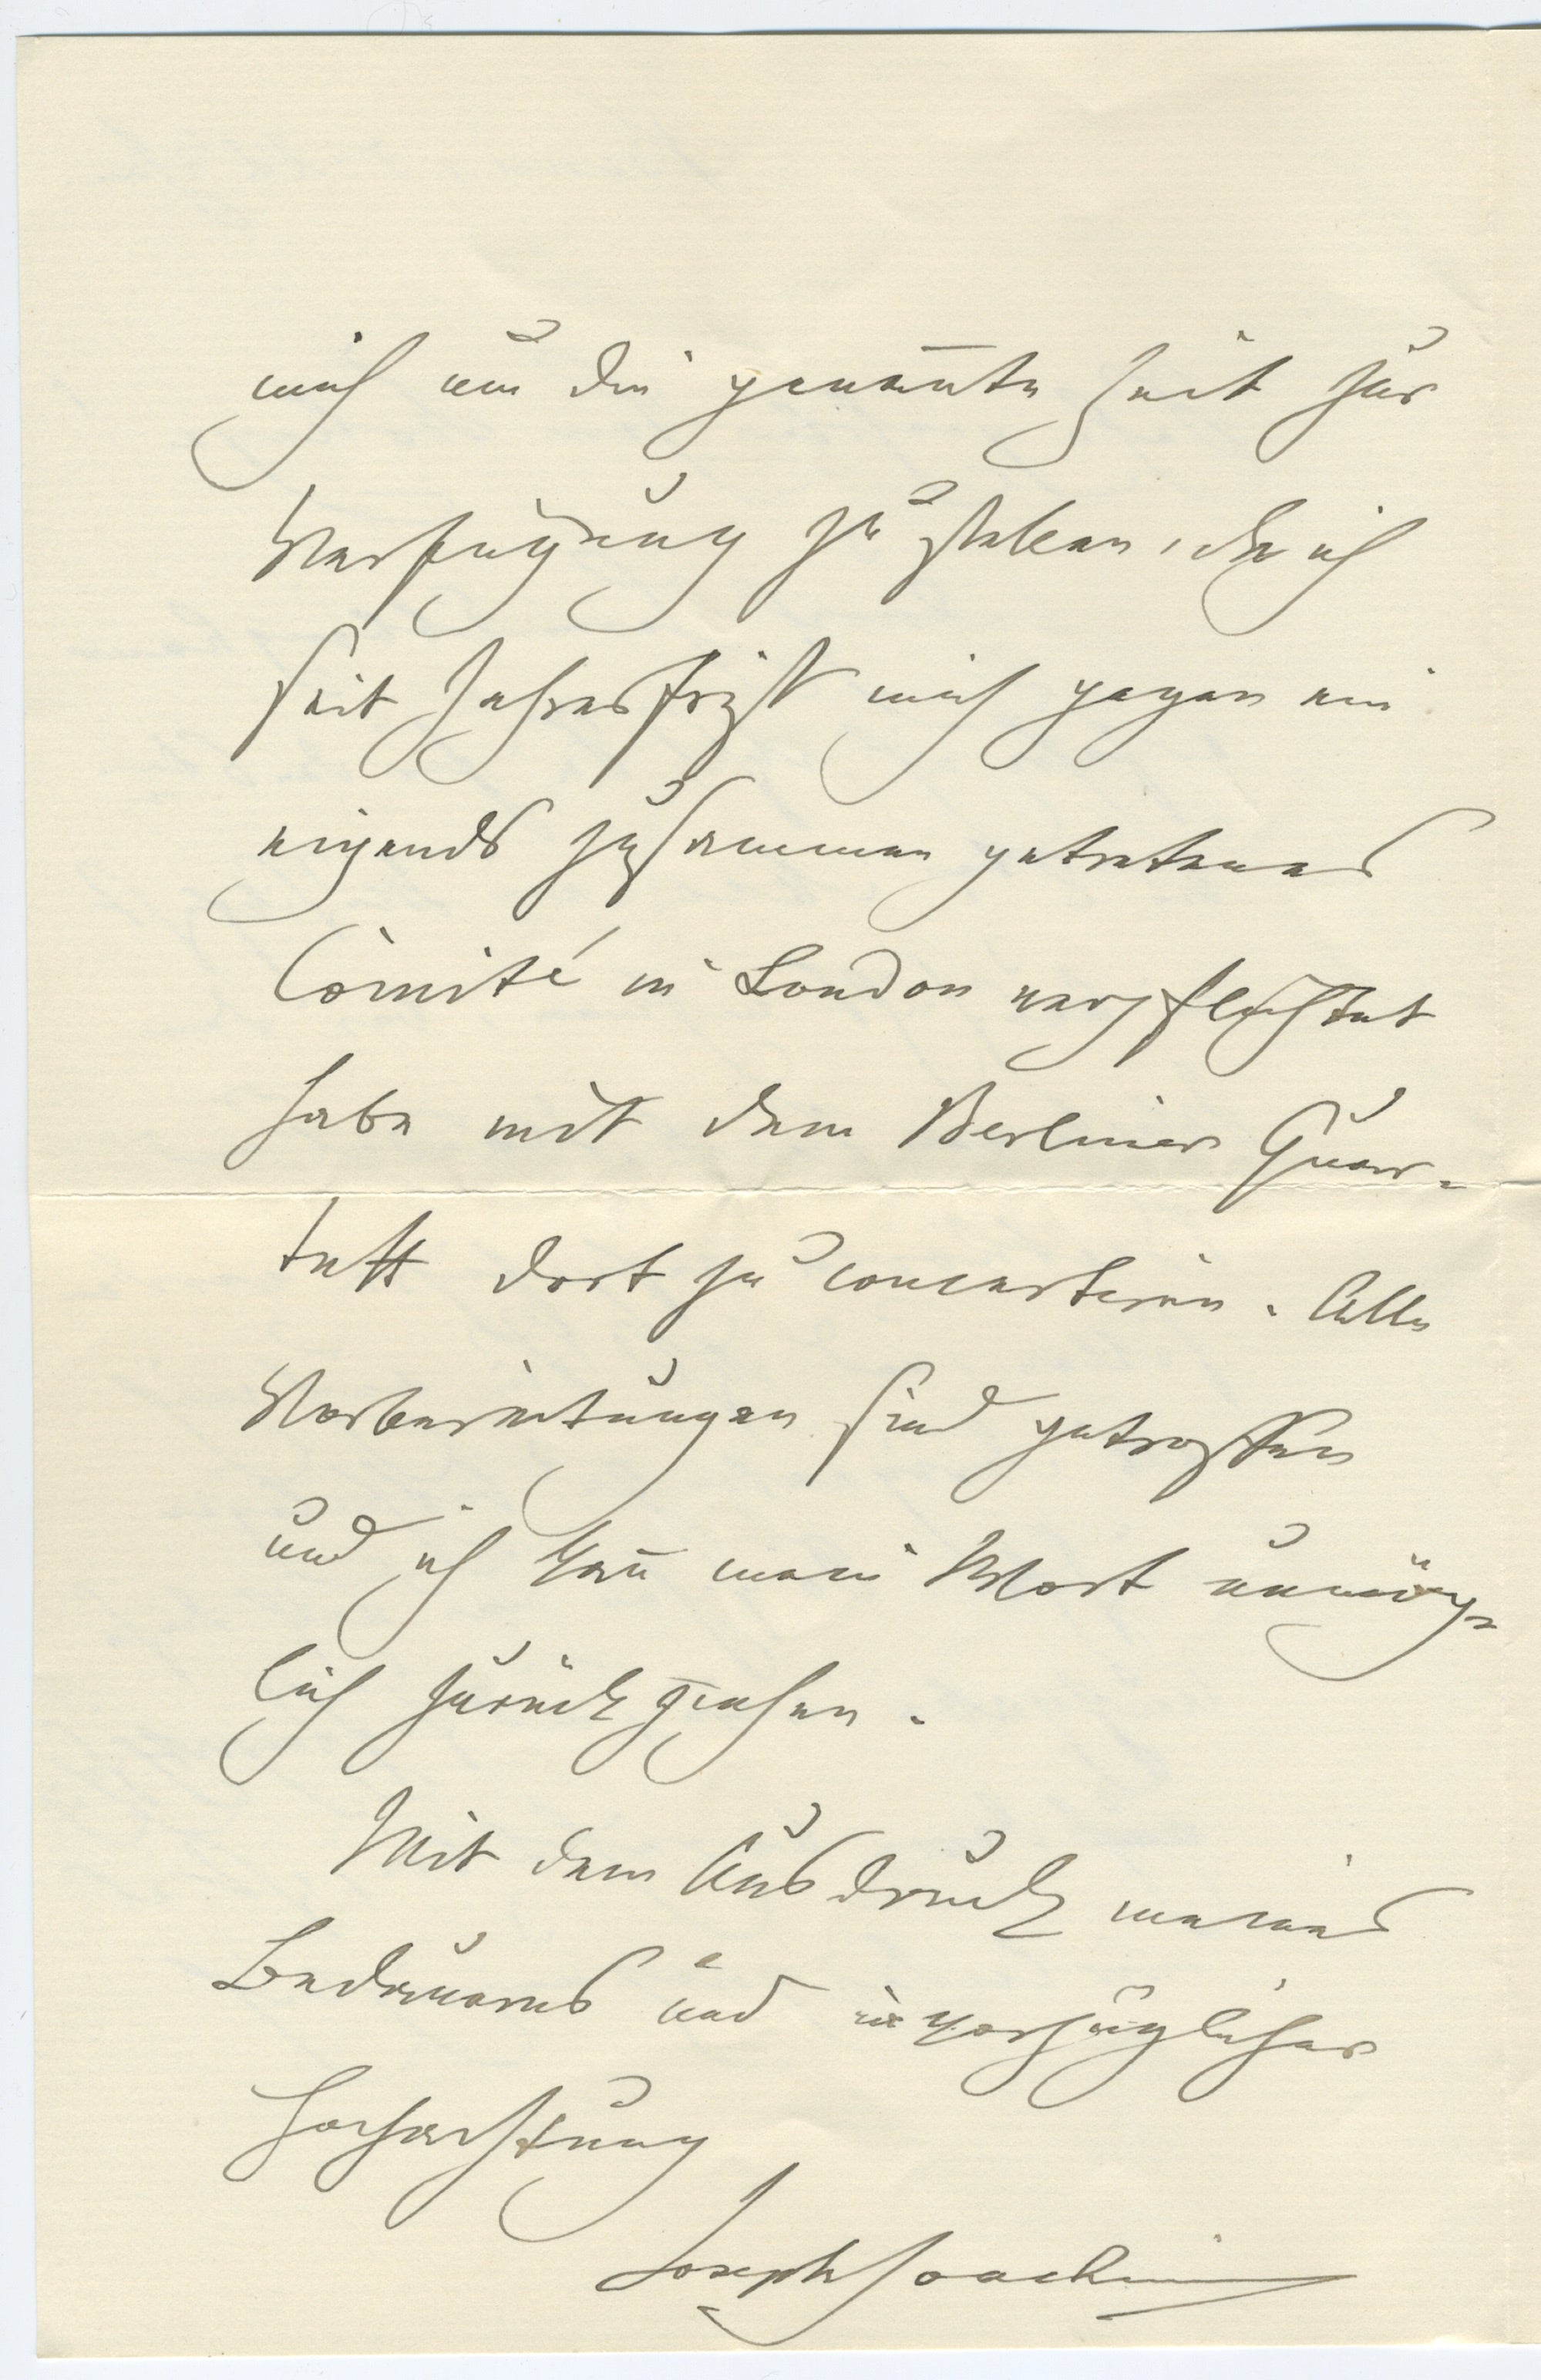 mich um die genan̄te Zeit zur
Verfügung zu stellen, da ich
seit Jahresfrist mich gegen ein
eigends zusammen getretenes
Comité in London verpflichtet
habe mit dem Berliner Quar-
tett dort zu concertiren. Alle
Vorbereitungen sind getroffen
und ich kan̄ mein Wort unmög-
lich zurückziehen.
Mit dem Ausdruck meines
Bedauerns und in vorzüglicher
Hochachtung
Joseph Joachim